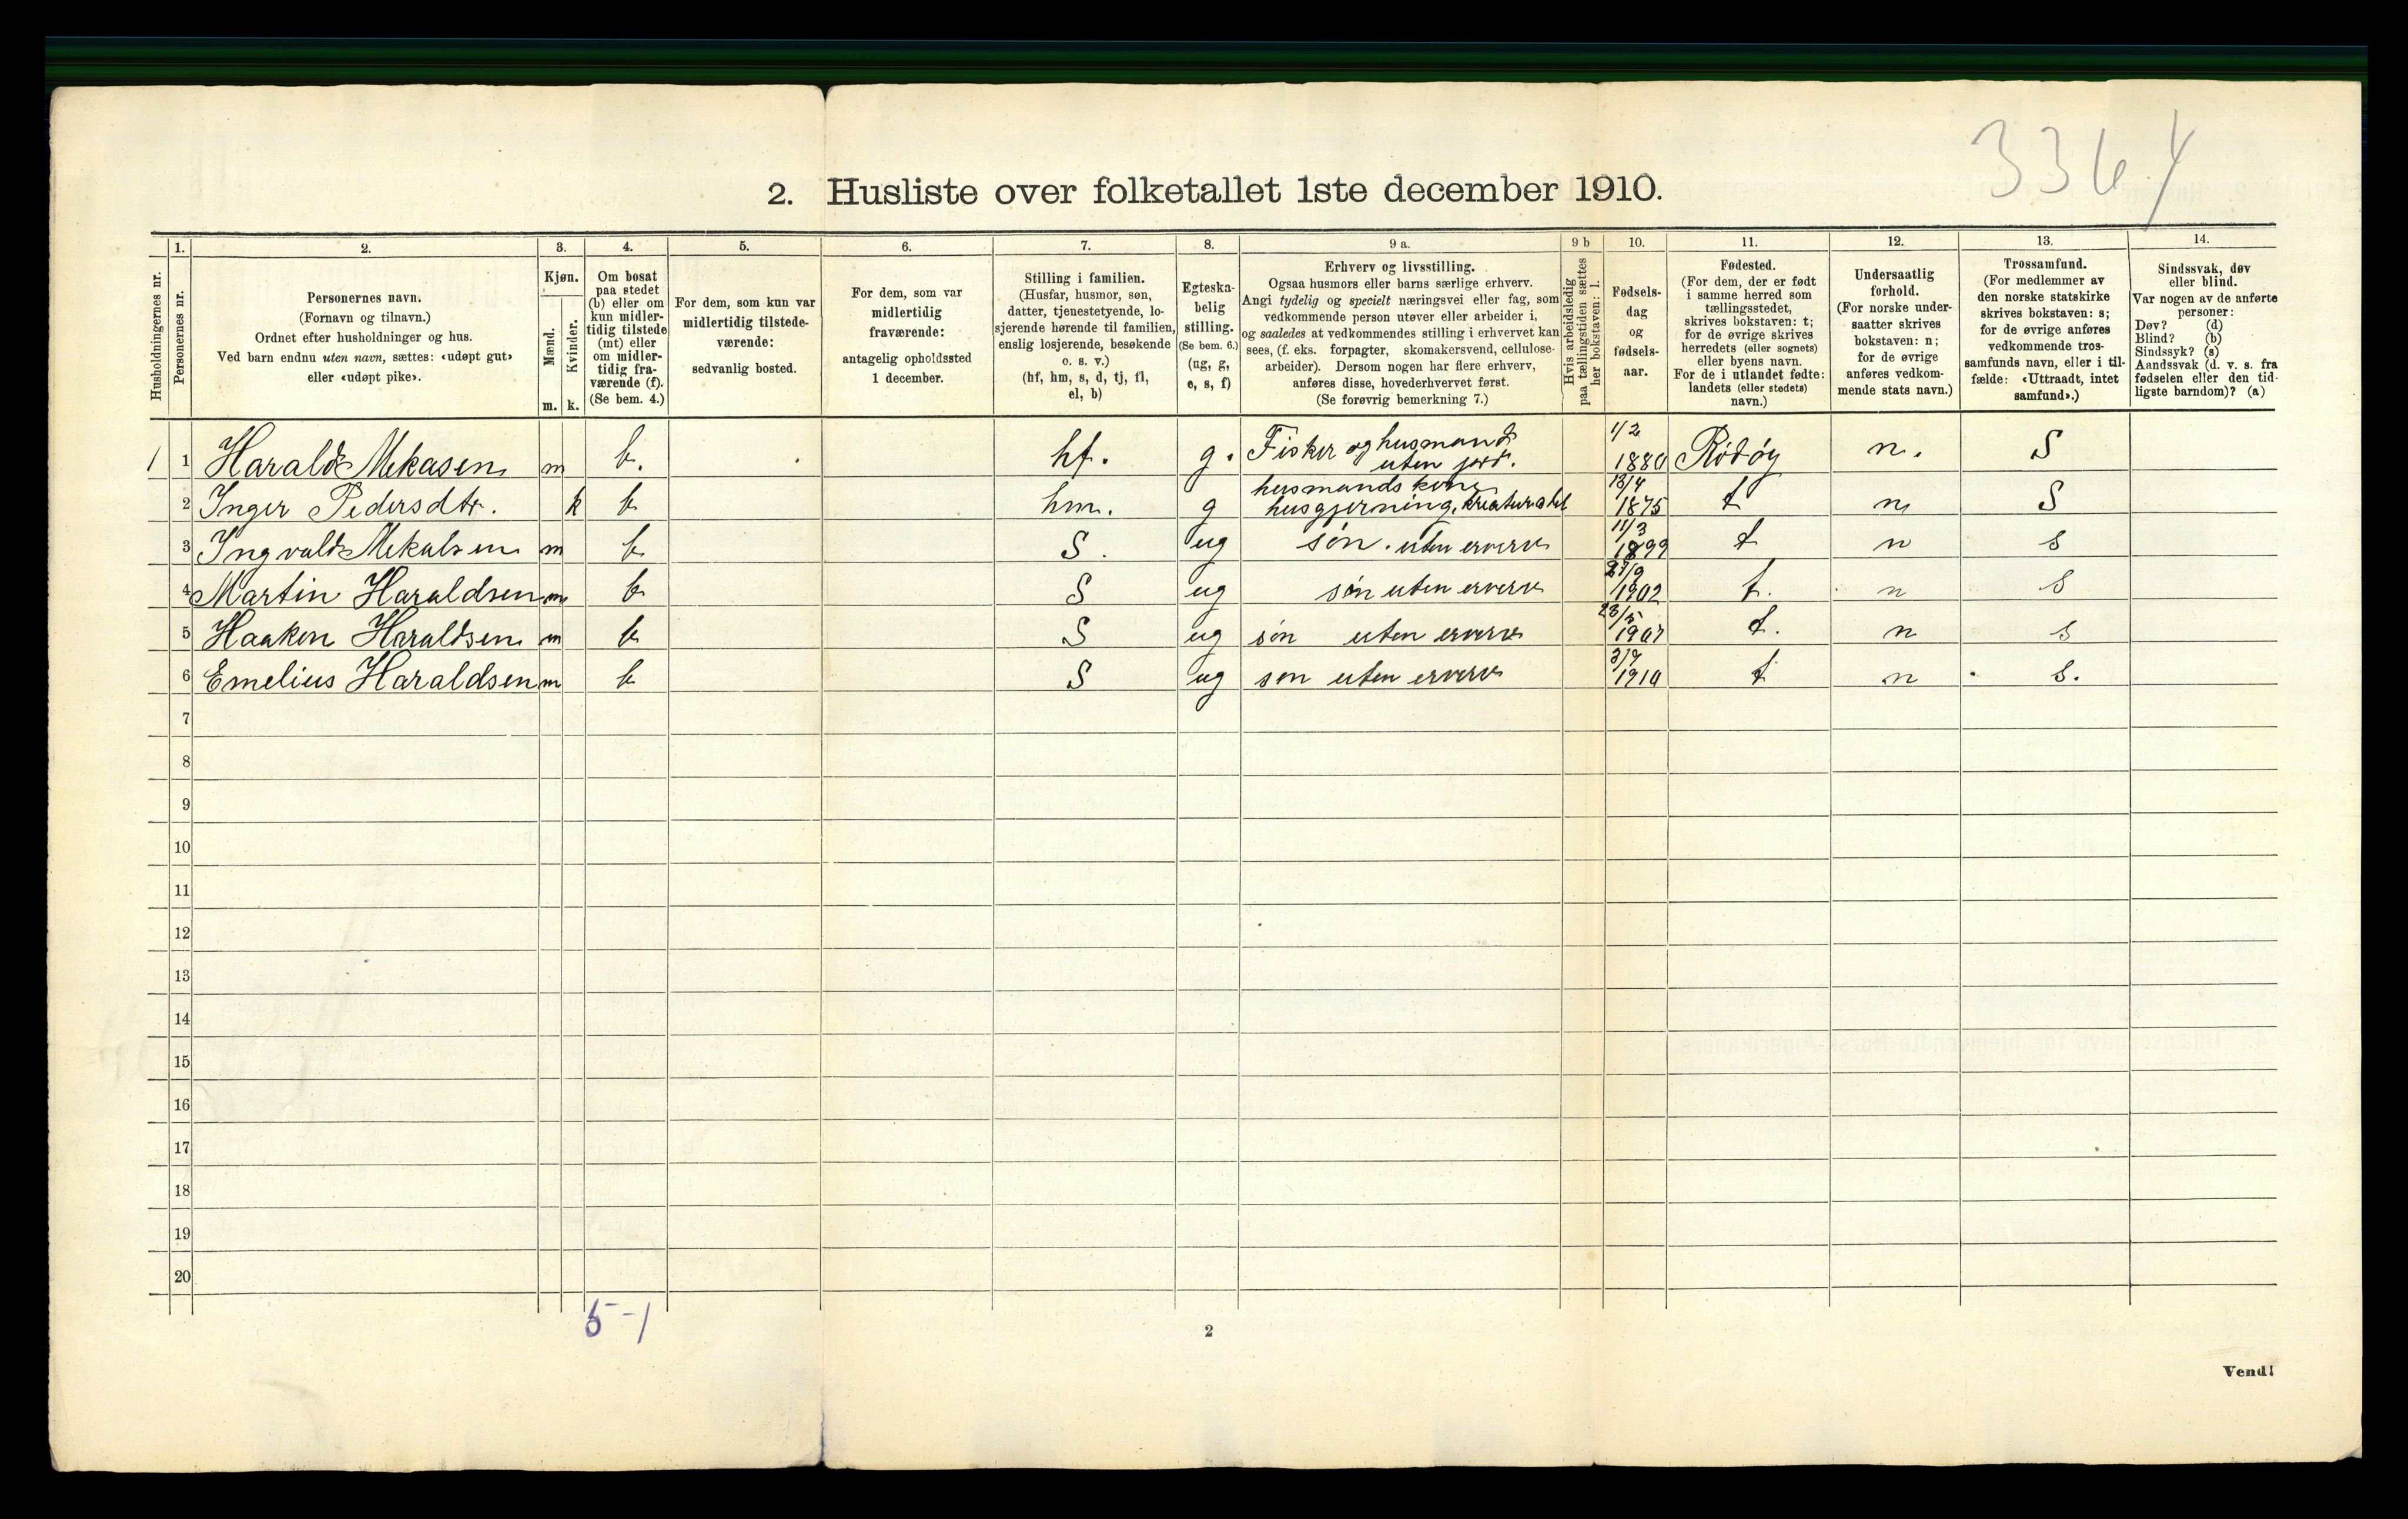 3364
2. Husliste over folketallet 1ste december 1910.
Husholdningernes nr.
1.
Personernes nr.
2.
Personernes navn.
(Fornavn og tilnavn.)
Ordnet efter husholdninger og hus.
Ved barn endnu uten navn, sættes: «udøpt gut»
eller «udøpt pike».
3.
Kjøn.
Mænd.
Kvinder.
m. k.
4.
Om bosat
paa stedet
(b) eller om
kun midler-
tidig tilstede
(mt) eller
om midler-
tidig fra-
værende (f).
(Se bem. 4.)
5.
For dem, som kun var
midlertidig tilstede-
værende:
sedvanlig bosted.
6.
For dem, som var
midlertidig
fraværende:
antagelig opholdssted
1 december.
7.
Stilling i familien.
(Husfar, husmor, søn,
datter, tjenestetyende, lo-
sjerende hørende til familien,
enslig losjerende, besøkende
o. s. v.)
(hf, hm, s, d, tj, fl,
el, b)
8.
Egteska-
belig
stilling.
(Se bem. 6.)
(ug, g,
e, s, f)
9 a.
Erhverv og livsstilling.
Ogsaa husmors eller barns særlige erhverv.
Angi tydelig og specielt næringsvei eller fag, som
vedkommende person utøver eller arbeider i,
og saaledes at vedkommendes stilling i erhvervet kan
sees, (f. eks. forpagter, skomakersvend, cellulose-
arbeider). Dersom nogen har flere erhverv,
anføres disse, hovederhvervet først.
(Se forøvrig bemerkning 7.)
9 b
Hvis arbeidsledig
paa tællingstiden sættes
her bokstaven: l.
10.
Fødsels-
dag
og
fødsels-
aar.
11.
Fødested.
(For dem, der er født
i samme herred som
tællingsstedet,
skrives bokstaven: t;
for de øvrige skrives
herredets (eller sognets)
eller byens navn.
For de i utlandet fødte:
landets (eller stedets)
navn.)
12.
Undersaatlig
forhold.
(For norske under-
saatter skrives
bokstaven: n;
for de øvrige
anføres vedkom-
mende stats navn.)
13.
Trossamfund.
(For medlemmer av
den norske statskirke
skrives bokstaven: s;
for de øvrige anføres
vedkommende tros-
samfunds navn, eller i til-
fælde: «Uttraadt, intet
samfund».)
14.
Sindssvak, døv
eller blind.
Var nogen av de anførte
personer:
Døv? (d)
Blind? (b)
Sindssyk? (s)
Aandssvak (d. v. s. fra
fødselen eller den tid-
ligste barndom)? (a)
1 1 Harald Mekasen m b. hf. g. Fisker og husmand uten jord. 1/2 1880 Rödöy n. S
2 Inger Pedersdtr. k b hm. g husmands kone husgjerning, kreaturstel 13/4 1875 t n S
3 Ingvald Mekalsen m b S. ug søn. uten erverv 11/3 1899 t n s
4 Martin Haraldsen m b S ug søn uten erverv 27/9 1902 t. n s
5 Haakon Haraldsen m b S ug søn uten erverv 23/5 1907 t. n s
6 Emelius Haraldsen m b S ug søn uten erverv 1910 t n s.
7
8
9
10
11
12
13
14
15
16
17
18
19
20
5-1
2
Vend!